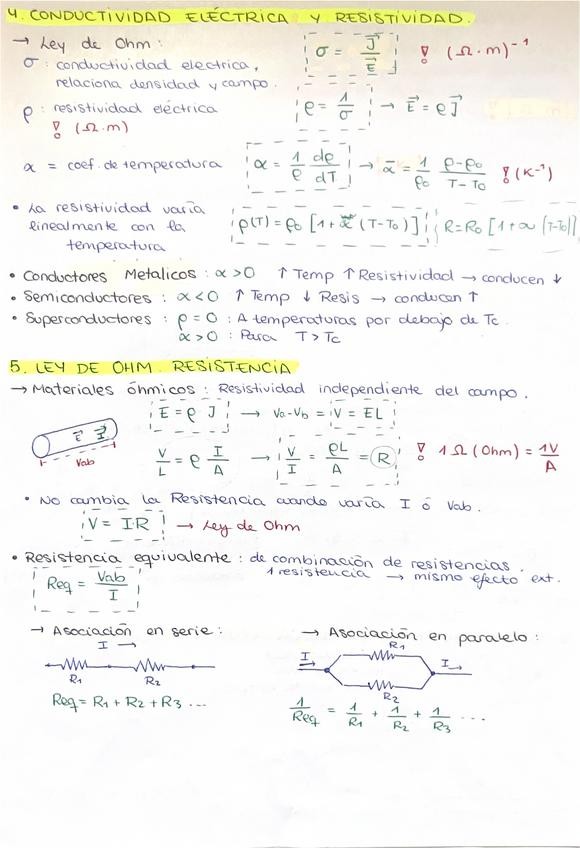 4. CONDUCTIVIDAD ELÉCTRICA Y RESISTIVIDAD.
→ Ley de Ohm:
σ: conductividad electrica, relaciona densidad y campo.
σ = J⃗ / E⃗ ! (Ω·m)⁻¹
ρ: resistividad eléctrica
! (Ω.m)
ρ = 1/σ → E⃗ = ρJ⃗
α = coef. de temperatura
α = 1/ρ dρ/dT → ᾱ = 1/ρ₀ ρ-ρ₀/T-T₀ ! (K⁻¹)
• La resistividad varía
linealmente con la
temperatura
ρ(T) = ρ₀ [1+ α (T-T₀)] R=R₀ [1+α (T-T₀)]
• Conductores Metalicos: α>0 ↑ Temp ↑ Resistividad → conducen ↓
• Semiconductores: α<0 ↑ Temp ↓ Resis → conducen ↑
• Superconductores: ρ=0 : A temperaturas por debajo de Tc.
α>0 : Para T>Tc
5. LEY DE OHM. RESISTENCIA
→ Materiales óhmicos: Resistividad independiente del campo.
E = ρ J → Va-Vb = V = EL
E⃗ J⃗
Vab
V/L = ρ I/A → V/I = ρL/A = R ! 1 Ω (Ohm) = 1V/A
• No cambia la Resistencia cuando varía I ó Vab.
V = I·R → Ley de Ohm
• Resistencia equivalente: de combinación de resistencias.
1 resistencia → mismo efecto ext.
Req = Vab/I
→ Asociación en serie:
I →
R₁ R₂
Req = R₁ + R₂ + R₃ ...
→ Asociación en paralelo:
R₁
I I
R₂
1/Req = 1/R₁ + 1/R₂ + 1/R₃ ...